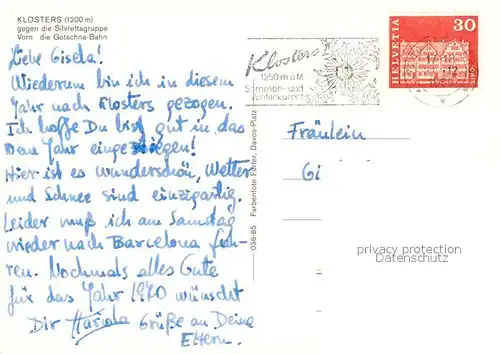 KLOSTERS (1200 m)
gegen die Silvrettagruppe
Vorn die Gotschna-Bahn
Liebe Gisela!
Wiederum bin ich in diesem
Jahr nach Klosters gezogen.
Ich hoffe Du bist gut in das
Neue Jahr eingezogen!
Hier ist es wunderschön, Wetter
und Schnee sind einzigartig.
Leider muß ich am Samstag
wieder nach Barcelona fah-
ren. Nochmals alles Gute
für das Jahr 1970 wünscht
Dir Mariola Grüße an Deine
Eltern.
036-85 Farbenfoto Furter, Davos-Platz
Klosters
1250 m ü M
Sommer- und
Winterkurort
HELVETIA
30
Fräulein
Gi
privacy protection
Datenschutz